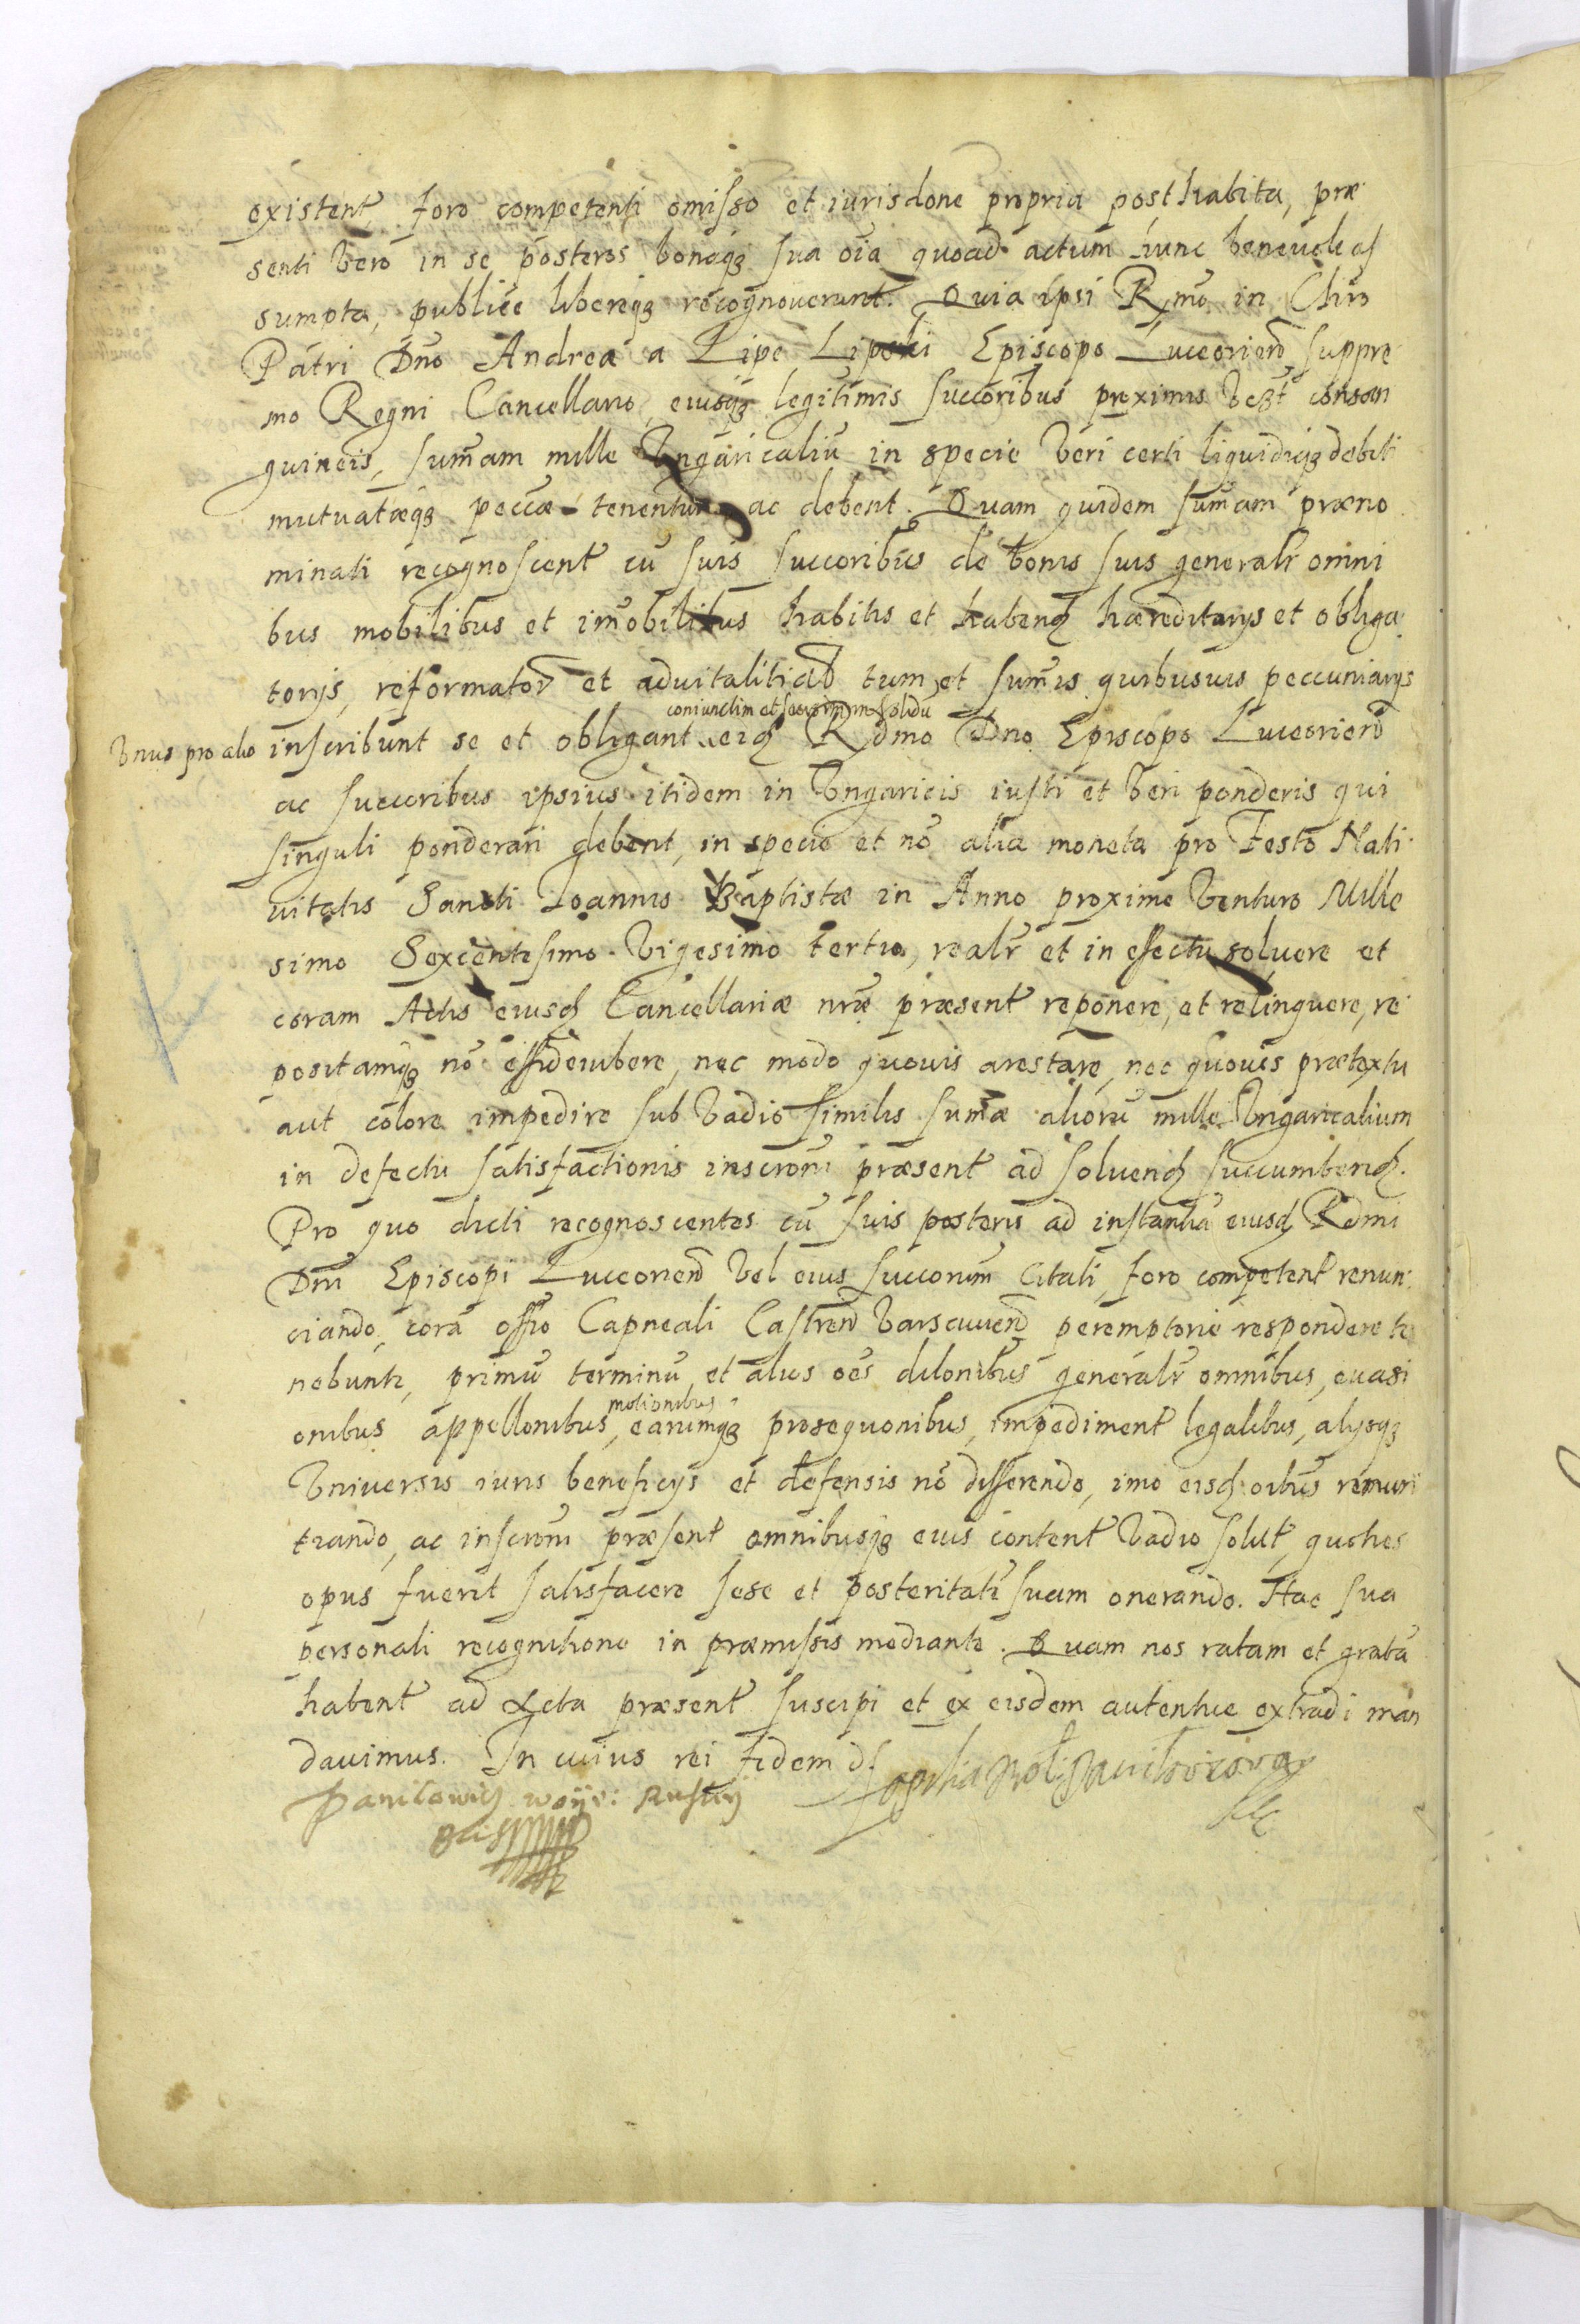 existent, foro competenti omisso et iurisdone propria posthabita, præ
senti vero in se posteros bonaqȝ sua oīa quoad actum hunc benevole as
sumpta, publice libereqȝ recognoverunt. Quia ipsi Rmō in Chrō
Patri Dnō Andreæ a Lipe Lipski Episcopo Luceorien suppre
mo Regni Cancellario, eiusqȝ legitimis succoribus proximis veȝt consan
guineis, sum̄am mille Vngaricaliū in specie veri certi liquidiqȝ debiti
mutuatæqȝ peccæ tenentur ac debent. Quam quidem sum̄am præno
minati recognoscent cū suis succoribus de bonis suis generalr omni
bus mobilibus et im̄obilibus habitis et habend hæreditarijs et obliga
torijs, reformator et aduitalitial tum et sum̄is quibusuis peccuniarijs
coniunctim et seorsim in solidū
Vnus pro alio inscribunt se et obligant eid Rdmo Dno Episcopo Luceorien
ac succoribus ipsius itidem in Vngaricis iusti et veri ponderis qui
singuli ponderari debent, in specie et nō alia moneta pro Festo Nati
uitatis Sancti Ioannis Baptistæ in Anno proxime venturo Mille
simo Sexcentesimo Vigesimo tertio, realr et in effectu soluere et
coram Actis eiusd Cancellariæ nræ præsent reponere, et relinquere, re
positamqȝ nō, nec modo quouis arestare, nec quouis prætextu
aut colore impedire sub vadio similis sum̄æ aliorū mille Vngaricalium
in defectu satisfactionis inscroni præsent ad soluend succumbend.
Pro quo dicti recognoscentes cū suis posteris ad instantiā eiusd Rdmi
Dni Episcopi Luceorien vel eius succorum Citati, foro competent renun
ciando, corā offo Capneali Castren Varscuuien peremptorie respondere te
nebunt, primū terminū, et alios oēs dilonibus generalr omnibus, euasi
motionibus
onibus appellonibus, earumqȝ prosequonibus, impediment legalibus, alijsqȝ
Vniversis iuris beneficijs et defensis nō differendo, imo eisd oibus renun
tiando, ac inscroni præsent omnibusqȝ eius content vadio solut, quoties
opus fuerit satisfacere sese et posteritatē suam onerando. Hac sua
personali recognitione in præmissis mediante. Quam nos ratam et gratā
habent ad Acta præsent suscipi et ex eisdem autentice extradi man
dauimus. In cuius rei fidem
Danilowicz woije: Ruskij